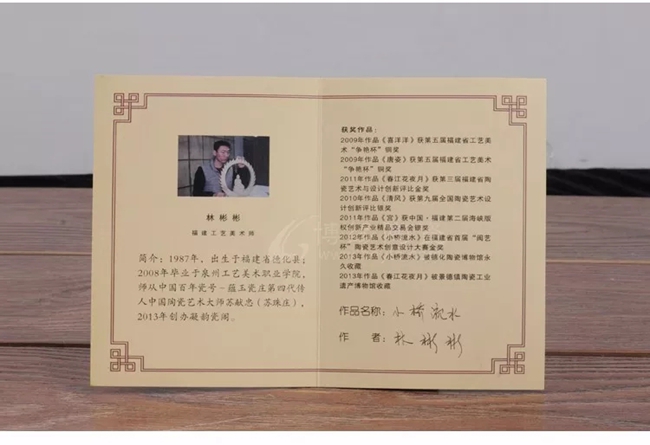 林彬彬
福建工艺美术师
简介：1987年，出生于福建省德化县；
2008年毕业于泉州工艺美术职业学院，
师从中国百年瓷号－蕴玉瓷庄第四代传
人中国陶瓷艺术大师苏献忠（苏珠庄），
2013年创办凝韵瓷阁。
获奖作品：
2009年作品《喜洋洋》获第五届福建省工艺美
术“争艳杯”铜奖
2009年作品《唐姿》获第五届福建省工艺美术
“争艳杯”铜奖
2011年作品《春江花夜月》获第三届福建省陶
瓷艺术与设计创新评比金奖
2010年作品《清风》获第九届全国陶瓷艺术设
计创新评比银奖
2011年作品《宫》获中国·福建第二届海峡版
权创新产业精品交易会银奖
2012年作品《小桥流水》在福建省首届“闽艺
杯”陶瓷艺术创意设计大赛金奖
2013年作品《小桥流水》被德化陶瓷博物馆永
久收藏
2013年作品《春江花夜月》被景德镇陶瓷工业
遗产博物馆收藏
作品名称：小桥流水
作 者：林彬彬